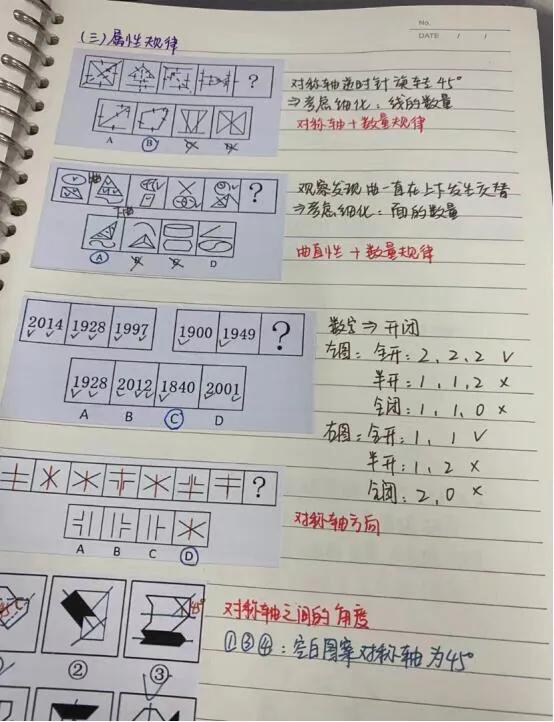 No.
DATE / /
(三)属性规律
?
A B C D
对称轴逆时针旋转45°
⇒考虑细化:线的数量
对称轴+数量规律
?
A B C D
观察发现曲一直在上下发生交替
⇒考虑细化:面的数量
曲直性+数量规律
2014 1928 1997 1900 1949 ?
1928 2012 1840 2001
A B C D
数字⇒开闭
左图:全开:2,2,2 √
半开:1,1,2 ×
全闭:1,1,0 ×
右图:全开:1,1 √
半开:1,2 ×
全闭:2,0 ×
?
A B C D
对称轴方向
45°
② ③
对称轴之间的角度
①③④:空白图案对称轴为45°